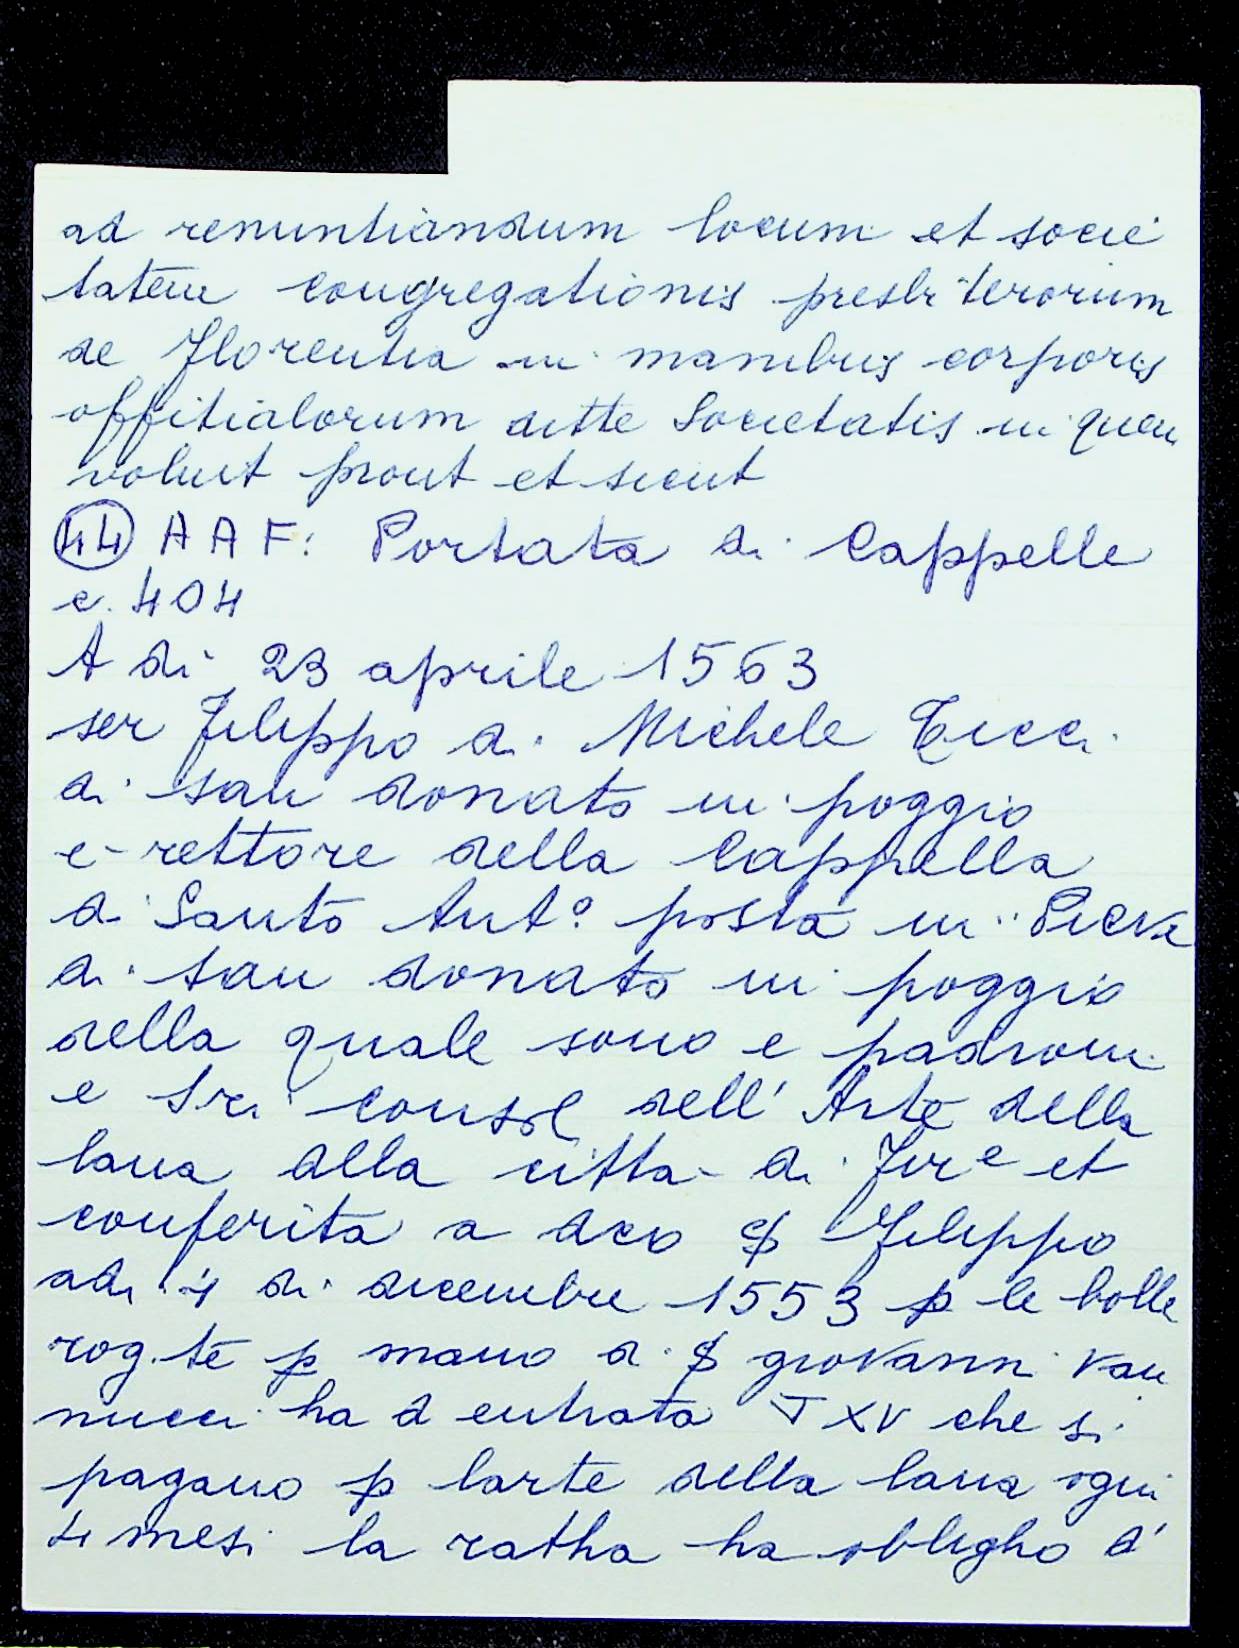 ad renuntiandum locum et socie
tatem congregationis presbiterorum
de Florentia in manibus corporis
offitialorum ditte Societatis in quem
voluit prout et sicut
44 A A F: Portata di Cappelle
c. 404
A di 23 aprile 1563
ser Filippo di Michele Cecci
di san donato in poggio
e rettore della Cappella
di Santo Antº posta in Pieve
di san donato in poggio
della quale sono e padroni
e Sri consol dell' Arte della
lana alla citta di Fire et
conferita a dco $ Filippo
adi 4 di dicembre 1553 p le bolle
rog.te p mano di $ giovanni Van
nucci ha d entrata XV che si
pagano p larte della lana ogni
4 mesi la ratha ha obligho d'